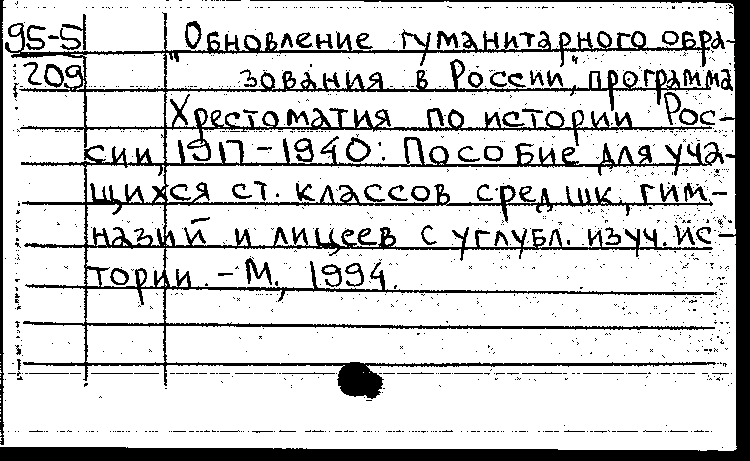 95-5 "Обновление гуманитарного обра-
209 зования в России", программа
Хрестоматия по истории Рос-
сии, 1917-1940: Пособие для уча-
щихся ст. классов сред. шк., гим-
назий и лицеев с углубл. изуч. ис-
тории. - М., 1994.